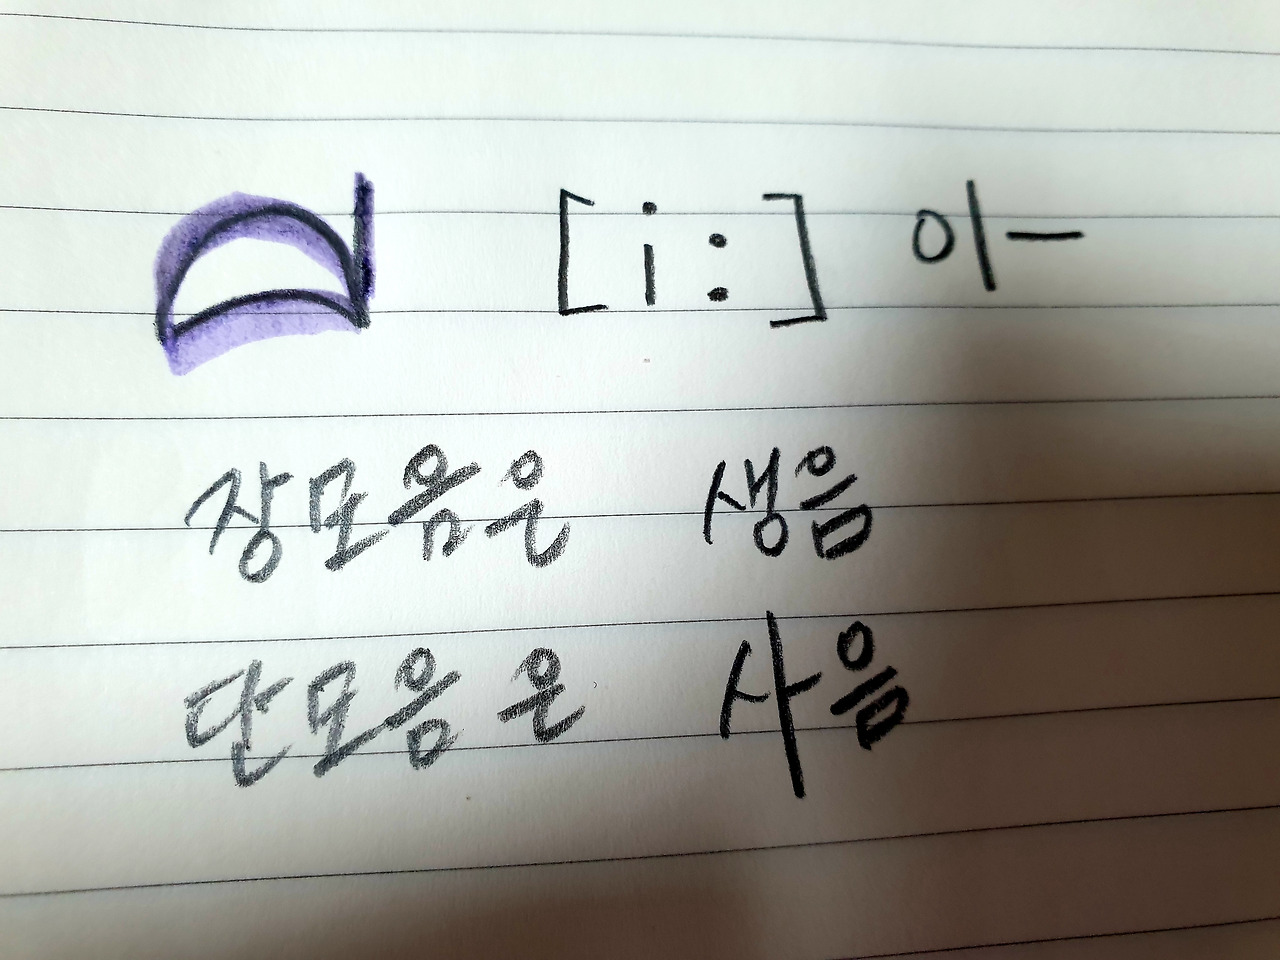 ี [i:] 이ㅡ
장모음은 생음
단모음은 사음